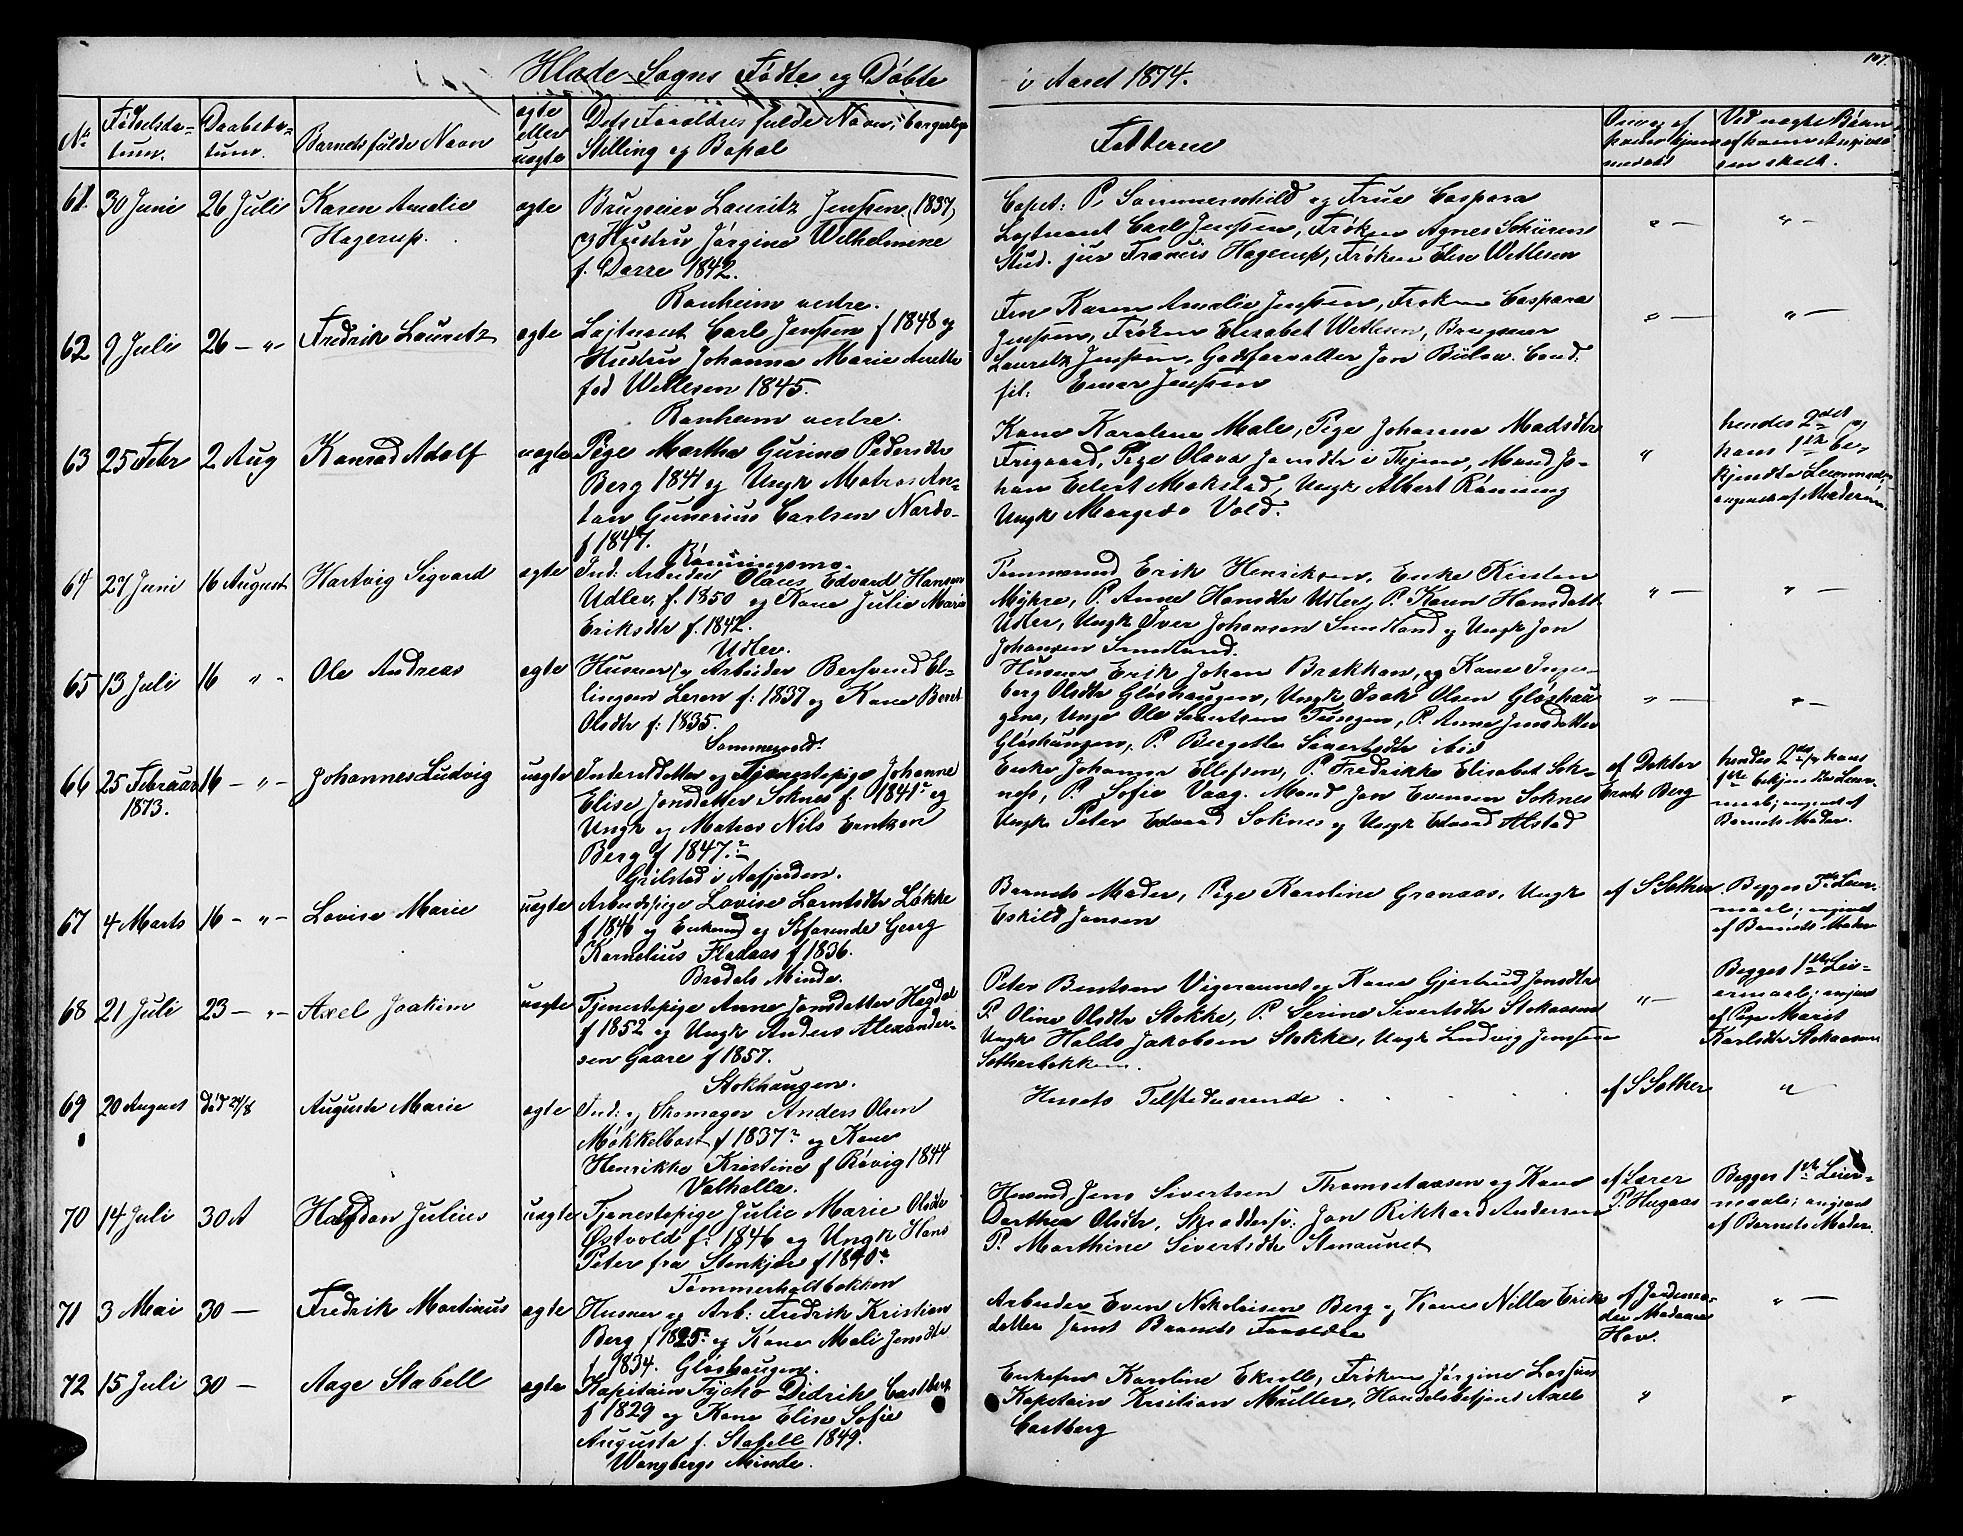 Hlade Sogns Fødte og Døbte
i Aaret 1874.
107.
No
Fødselsda-
tum.
Daabsda-
tum.
Barnets fulde Navn
ægte
eller
uægte
Forældres fulde Navn, borgerlige
Stilling og Bopæl
Fadderne
Børn
61. 30 Juni 26 Juli Karen Amalie ægte
Hagerup.
Brugseier Lauritz Jenssen (1837)
og Hustru Jørgine Wilhelmine
f. Darre 1842.
Ranheim vestre.
Capt: P. Sommerschild og Frue Caspara
Løjtnant Carl Jenssen, Frøken Agnes
Stud. jur Francis Hagerup, Frøken Elise Wetlesen
62 9 Juli 26 - " - Fredrik Lauritz ægte
Løjtnant Carl Jenssen f 1848 og
Hustru Johanna Marie Anette
fød Wetlesen 1845.
Ranheim vestre.
Fru Karen Amalie Jenssen, Frøken Caspara
Jenssen, Frøken Elisabet Wetlesen, Brugseier
Lauritz Jenssen, Godsforvalter Jon Bülow. Cand.
fil: Einar Jenssen
63 25 Febr 2 Aug Konrad Adolf uægte
Pige Martha Gurine Pedersdtr
Berg 1841 og Ungk Matros An-
ton Gunerius Carlsen Nords.
f 1847.
Rønningsmo.
Kone Karolena Male, Pige Johanna Madsdtr
Frigaard, Pige Olava Jonsdtr i Thjem, Mand Jo-
han Edert Mokstad, Ungk Albert Rønning
Ungk Vold.
hendes 2det og
hans 1ste be-
kjendte Leiermaal,
angivet af Moderen
64 27 Juni 16 August Hartvig Sigvard ægte
Ind: Arbeider Olaus Edvard Hansen
Udler, f. 1850 og Kone Julie Marie
Eriksdtr f. 1842.
Udler.
Tømmermd Erik Henriksen, Enke Kirsten
Myhre, P. Anne Hansdtr Udler, P. Karen Hansdatt
Udler, Ungk Iver Johansen Sundland og Ungk Jon
Johansen Sundland.
65 13 Juli 16 " - Ole Andreas ægte
Husmand og Arbeider Bersvend El-
lingsen Leren f: 1837 og Kone Beret
Olsdtr f: 1835.
Sommervold.
Husm Erik Johan Brekhan, og Kone Inge-
berg Olsdtr Gløshaugen, Ungk Isak Olsen Gløshau
gen, Unge Ole Sivertsen Tungen, P. Anne Jonsdatter
Gløshaugen, P. Bergette Sivertsdtr ibid
66 25 Februar 16 - " - Johannes Ludvig uægte
1873.
Inderstdatter og Tjenestepige Johanne
Elise Jonsdatter Soknes f: 1841 og
Ungk og Matros Nils Erntsen
Berg f 1847.
Grilstad i Aafjorden.
Enke Johanna Ellefsen, P. Fredrikke Elisabet Sok-
nes, P. Sofie Vaag. Mand Jon Evensen Soknes
Ungk Peter Edvard Soknes og Ungk Edvard Alstad
af Doktor
Ernts Berg
hendes 2det og hans
1ste bekjendte Leier-
maal; angivet af
Barnets Moder.
67 4 Marts 16 - " - Lovise Marie uægte
Arbeidspige Lovise Larntsdtr Løkke
f 1846 og Enkemd og Søfarende Georg
Kornelius Fladaas f 1836.
Brodals Minde.
Barnets Moder, Pige Karoline Granaas, Ungk
Eskild Jansen
af S. Sother
Begges 1ste Leier-
maal; angivet
af Barnets Moder
68 21 Juli 23 - " - Axel Joakim uægte
Tjenestepige Anne Jonsdatter Hagdal
f 1852 og Ungk Anders Alexander-
sen Gaare f 1857.
Stokhaugen.
Peter Bentsen Vigeraunet og Kone Gjertrud Jonsdtr
P. Oline Olsdtr Stokke, P. Serine Sivertsdtr Stokaunet
Ungk Jakobsen Stokke, Ungk Ludvig Jenssen
Sotherbakken.
Begges 1ste Lei-
ermaal; angivet
af Pige Marit
Karlsdtr Stokaunet
69 20 August død 21/8 Auguste Marie ægte
Ind: og Skomager Anders Olsen
Møkkelbost f 1837 og Kone
Henrikke Kristine f Røvig 1844
Valhalla.
Husets Tilstedeværende
af S Sother
70 14 Juli 30 A Halfdan Julius uægte
Tjenestepige Julie Marie Olsdtr
Østvold f: 1846 og Ungk Hans
Peter fra Stenkjær f 1840
Tømmerholtbakken
Husmd Jens Sivertsen Thomsetaasen og Kone
Dorthea Olsdtr, Skræddersv: Jon Rikhard Andersen
P. Marthine Sivertsdtr Stenaunet
af Lærer
P. Hugaas
Begges 1ste Leier-
maal; angivet
af Barnets Moder
71 3 Mai 30 - Fredrik Martinus ægte
Husmr og Arb: Fredrik Kristian
Berg f 1825 og Kone Mali Jonsdtr
f 1834. Gløshaugen.
Arbeider Even Nikolaisen Berg og Kone Nilla Eriks
datter samt Barnets Forældre
af Jordemo-
der Madame
Hov.
72 15 Juli 30 - Aage Stabell ægte
Kapitain Tycho Didrik Castberg
f 1829 og Kone Elise Sofie
Augusta f. Stabell 1849.
Wangbergs Minde.
Enkefru Karoline Ekroll, Frøken Jørgine Lossius
Kapitain Kristian Müller, Handelsbetjent Axel
Castberg